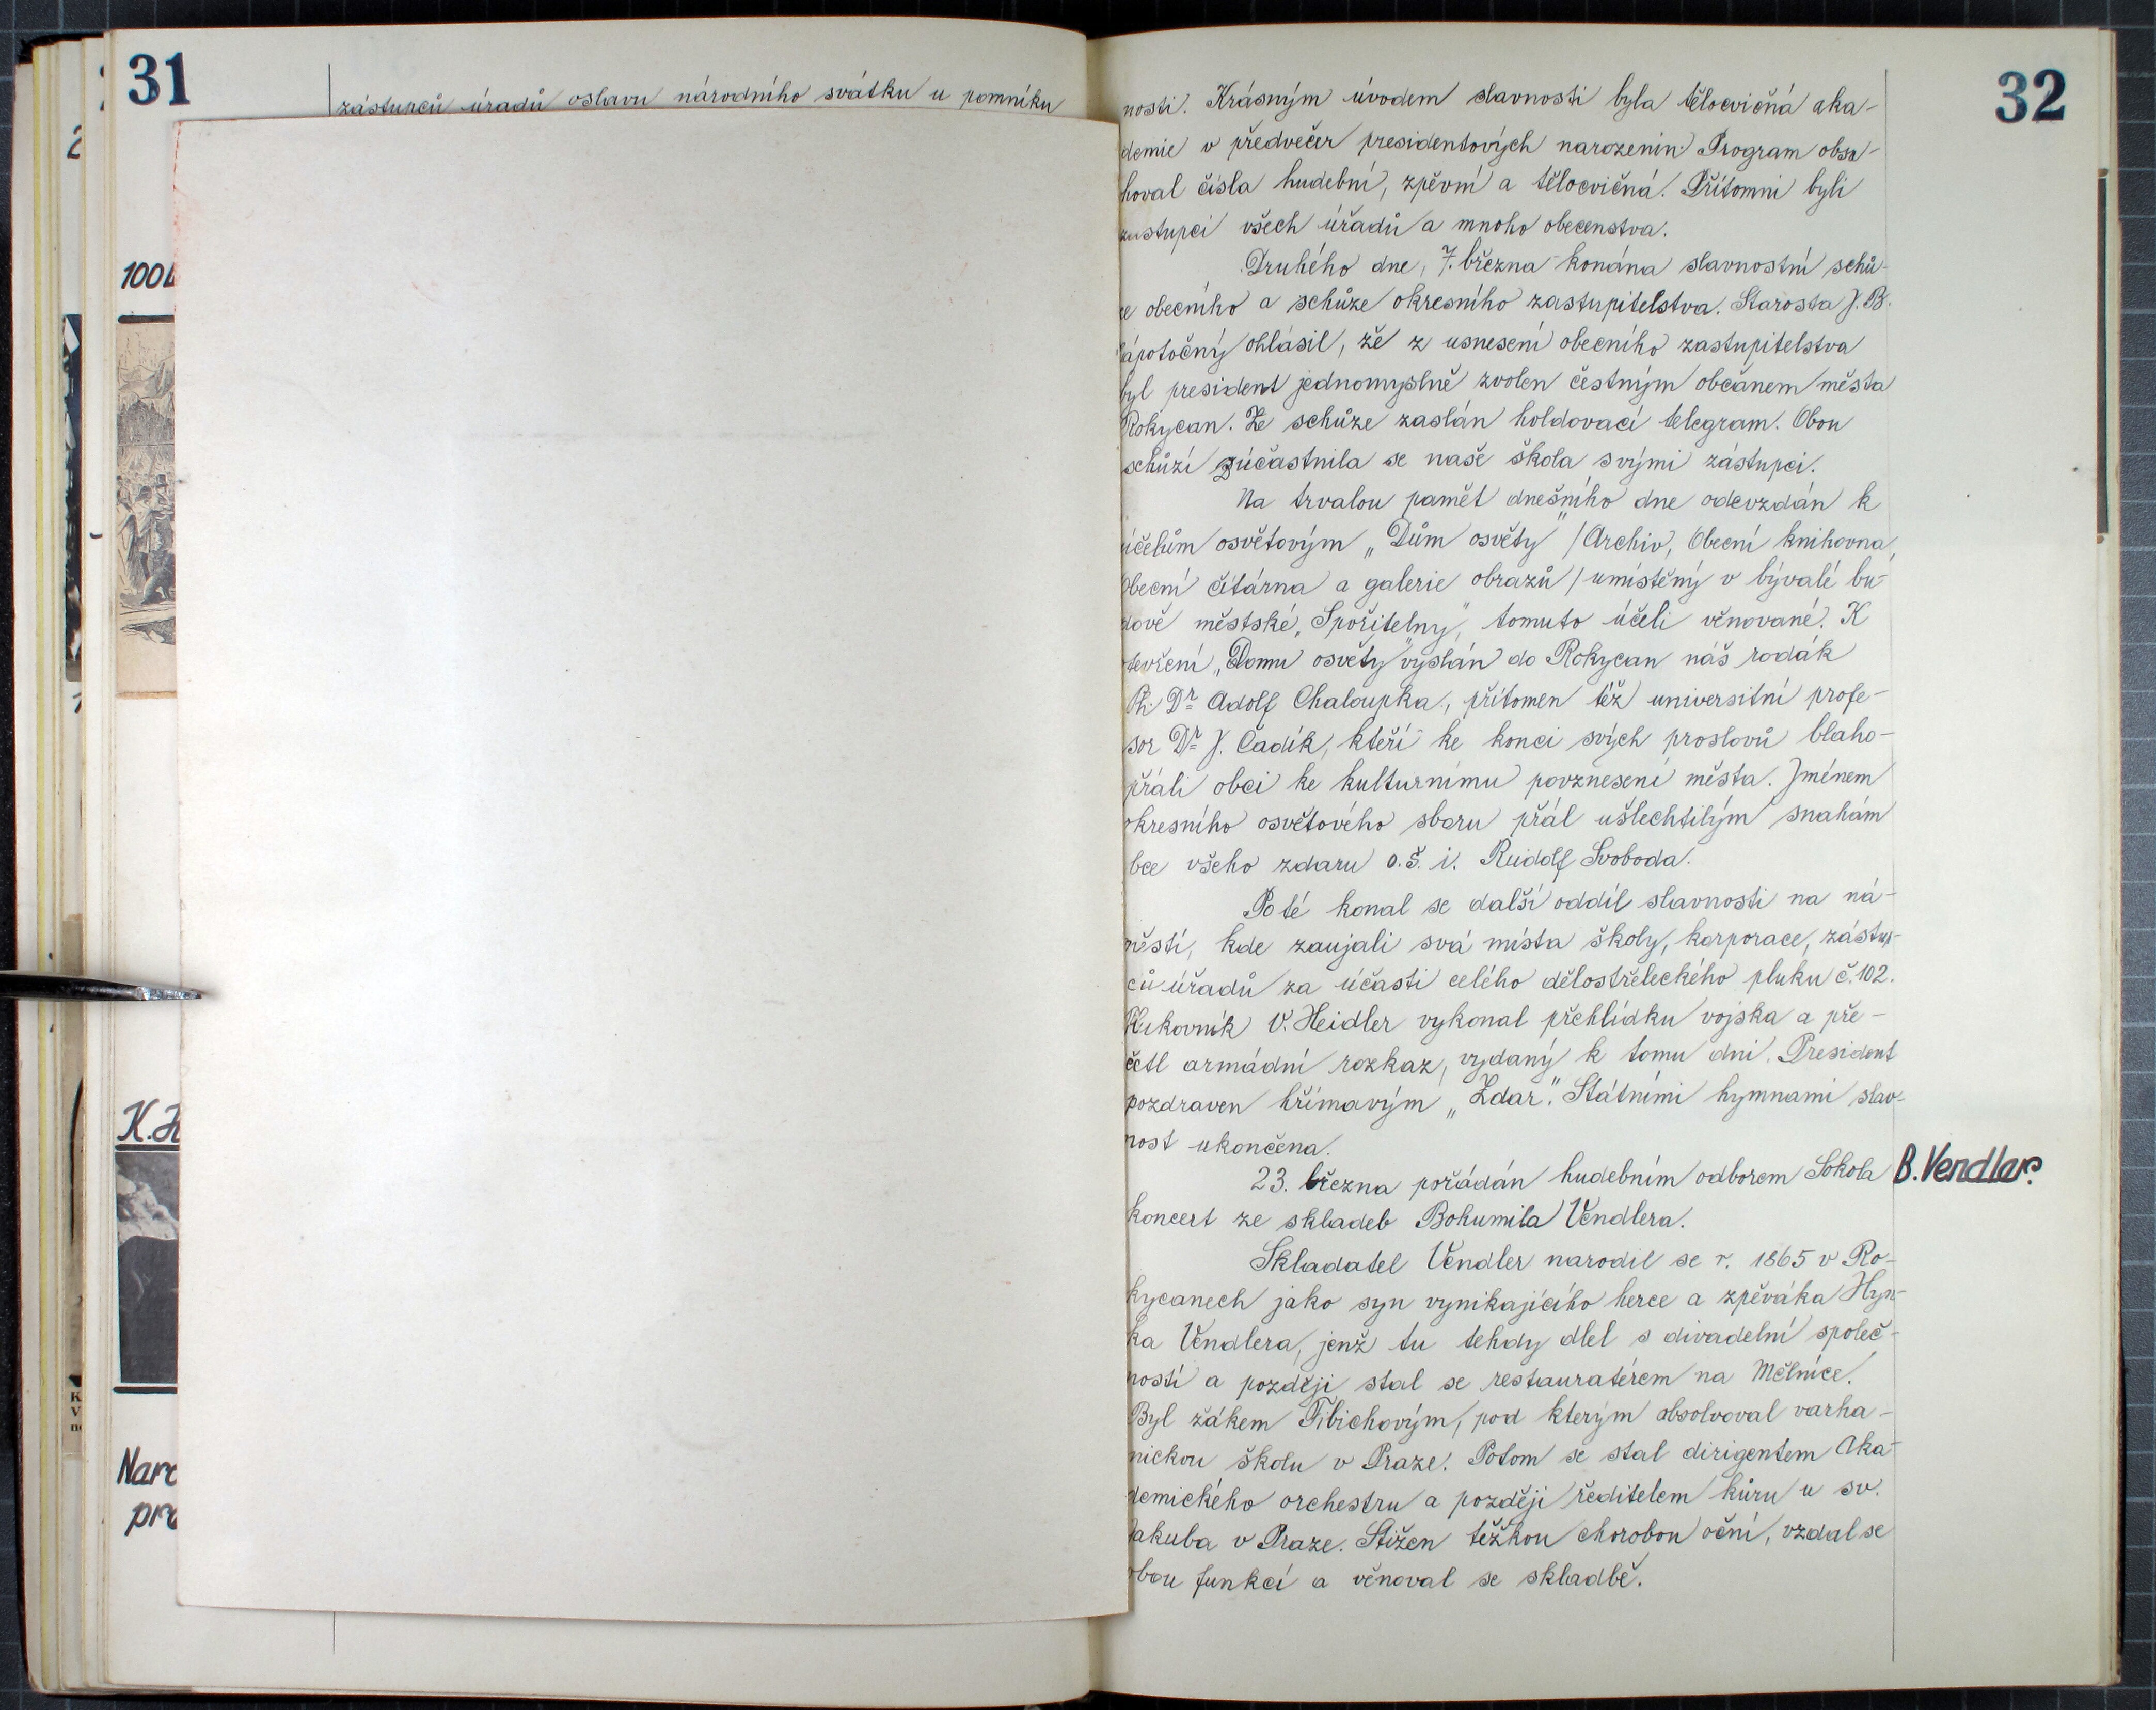 31
zástupců úřadů oslavu národního svátku u pomníku
100
K.H
Naro
pro
32
nosti. Krásným úvodem slavnosti byla tělocvičná aka-
demie v předvečer presidentových narozenin. Program obsa-
hoval čísla hudební, zpěvní a tělocvičná. Přítomni byli
zástupci všech úřadů a mnoho obecenstva.
Druhého dne, 7. března konána slavnostní schů-
ze obecního a schůze okresního zastupitelstva. Starosta J. B.
Zápotočný ohlásil, že z usnesení obecního zastupitelstva
byl president jednomyslně zvolen čestným občanem města
Rokycan. Ze schůze zaslán holdovací telegram. Obou
schůzí zúčastnila se naše škola svými zástupci.
Na trvalou pamět dnešního dne odevzdán k
účelům osvětovým „Dům osvěty" /Archiv, Obecní knihovna,
Obecní čítárna a galerie obrazů/ umístěný v bývalé bu-
dově městské „Spořitelny", tomuto účeli věnované. K
otevření „Domu osvěty" vyslán do Rokycan náš rodák
Ph Dr Adolf Chaloupka, přítomen též universitní profe-
sor Dr J. Čadík, kteří ke konci svých proslovů blaho-
přáli obci ke kulturnímu povznesení města. Jménem
okresního osvětového sboru přál ušlechtilým snahám
obce všeho zdaru o. š. i. Rudolf Svoboda.
Poté konal se další oddíl slavnosti na ná-
městí, kde zaujali svá místa školy, korporace, zástup-
ců úřadů za účasti celého dělostřeleckého pluku č. 102.
Plukovník V. Heidler vykonal přehlídku vojska a pře-
četl armádní rozkaz, vydaný k tomu dni. President
pozdraven hřímavým „Zdar". Státními hymnami slav-
nost ukončena.
23. března pořádán hudebním odborem Sokola
B. Vendler.
koncert ze skladeb Bohumila Vendlera.
Skladatel Vendler narodil se r. 1865 v Ro-
kycanech jako syn vynikajícího herce a zpěváka Hyn-
ka Vendlera, jenž tu tehdy dlel s divadelní společ-
ností a později stal se restauratérem na Mělníce.
Byl žákem Fibichovým, pod kterým absolvoval varha-
nickou školu v Praze. Potom se stal dirigentem Aka-
demického orchestru a později ředitelem kůru u sv.
Jakuba v Praze. Stižen těžkou chorobou oční, vzdal se
obou funkcí a věnoval se skladbě.